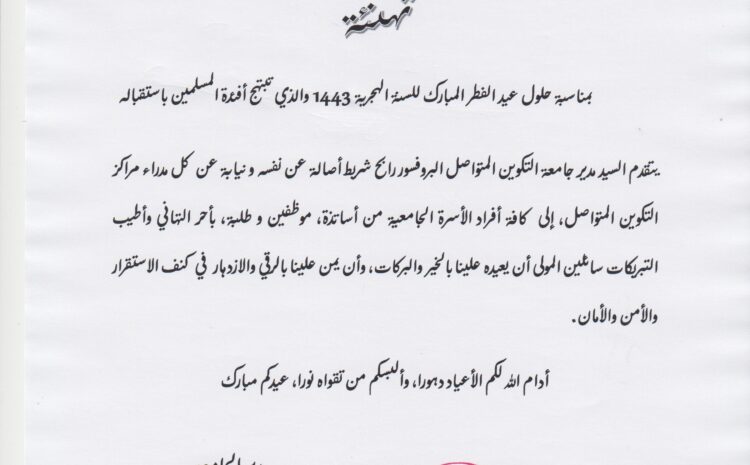 تهنئة
بمناسبة حلول عيد الفطر المبارك للسنة الهجرية 1443 والذي تبتهج أفئدة المسلمين باستقباله
يتقدم السيد مدير جامعة التكوين المتواصل البروفسور رابح شريط أصالة عن نفسه و نيابة عن كل مدراء مراكز
التكوين المتواصل، إلى كافة أفراد الأسرة الجامعية من أساتذة، موظفين و طلبة، بأحر التهاني وأطيب
التبريكات سائلين المولى أن يعيده علينا بالخير والبركات، وأن يمن علينا بالرقي والازدهار في كنف الاستقرار
والأمن والأمان.
أدام الله لكم الأعياد دهورا، وألبسكم من تقواه نورا، عيدكم مبارك